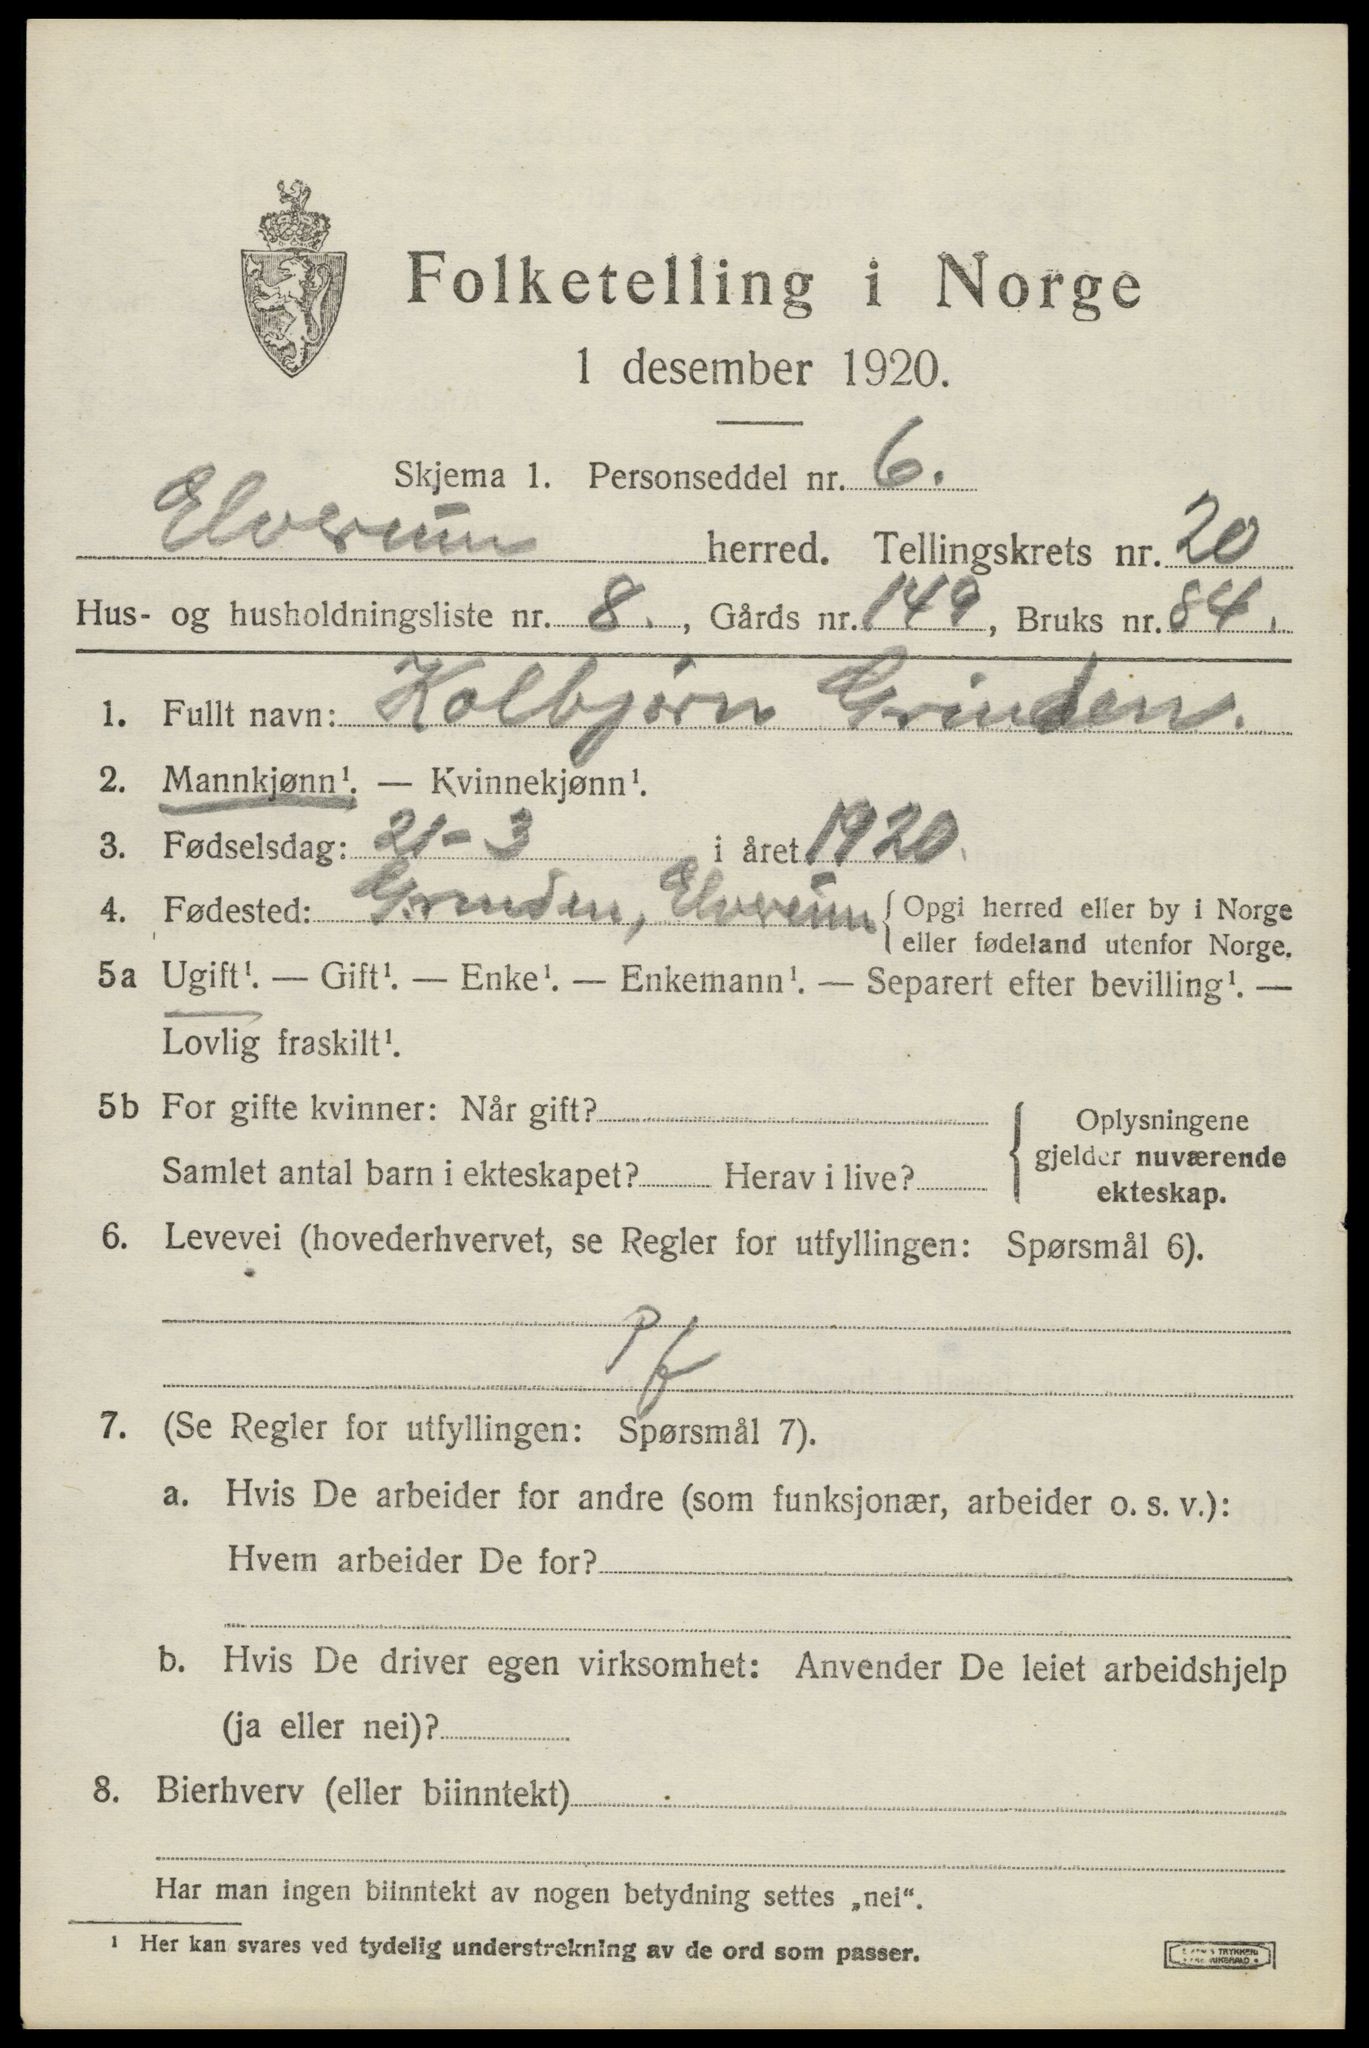 Folketelling i Norge
1 desember 1920.
Skjema 1. Personseddel nr. 6.
Elverum herred. Tellingskrets nr. 20
Hus- og husholdningsliste nr. 8., Gårds nr. 149, Bruks nr. 84.
1. Fullt navn: Kolbjørn Grinden.
2. Mannkjønn¹. — Kvinnekjønn¹.
3. Fødselsdag: 21-3 i året 1920.
4. Fødested: Grinden, Elverum { Opgi herred eller by i Norge
eller fødeland utenfor Norge.
5a Ugift¹. — Gift¹. — Enke¹. — Enkemann¹. — Separert efter bevilling¹. —
Lovlig fraskilt¹.
5b For gifte kvinner: Når gift? { Oplysningene
gjelder nuværende
Samlet antal barn i ekteskapet? Herav i live? ekteskap.
6. Levevei (hovederhvervet, se Regler for utfyllingen: Spørsmål 6).
Pf
7. (Se Regler for utfyllingen: Spørsmål 7).
a. Hvis De arbeider for andre (som funksjonær, arbeider o. s. v.):
Hvem arbeider De for?
b. Hvis De driver egen virksomhet: Anvender De leiet arbeidshjelp
(ja eller nei)?
8. Bierhverv (eller biinntekt)
Har man ingen biinntekt av nogen betydning settes „nei“.
¹ Her kan svares ved tydelig understrekning av de ord som passer.
TRYKKERI